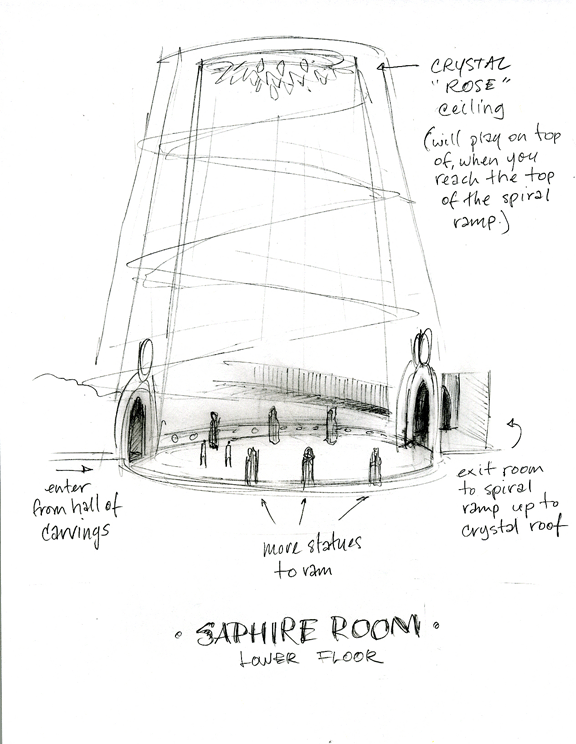 CRYSTAL
"ROSE"
ceiling
(will play on top
of, when you
reach the top
of the spiral
ramp.)
enter
from hall of
carvings
more statues
to ram
exit room
to spiral
ramp up to
crystal roof
• SAPHIRE ROOM •
LOWER FLOOR